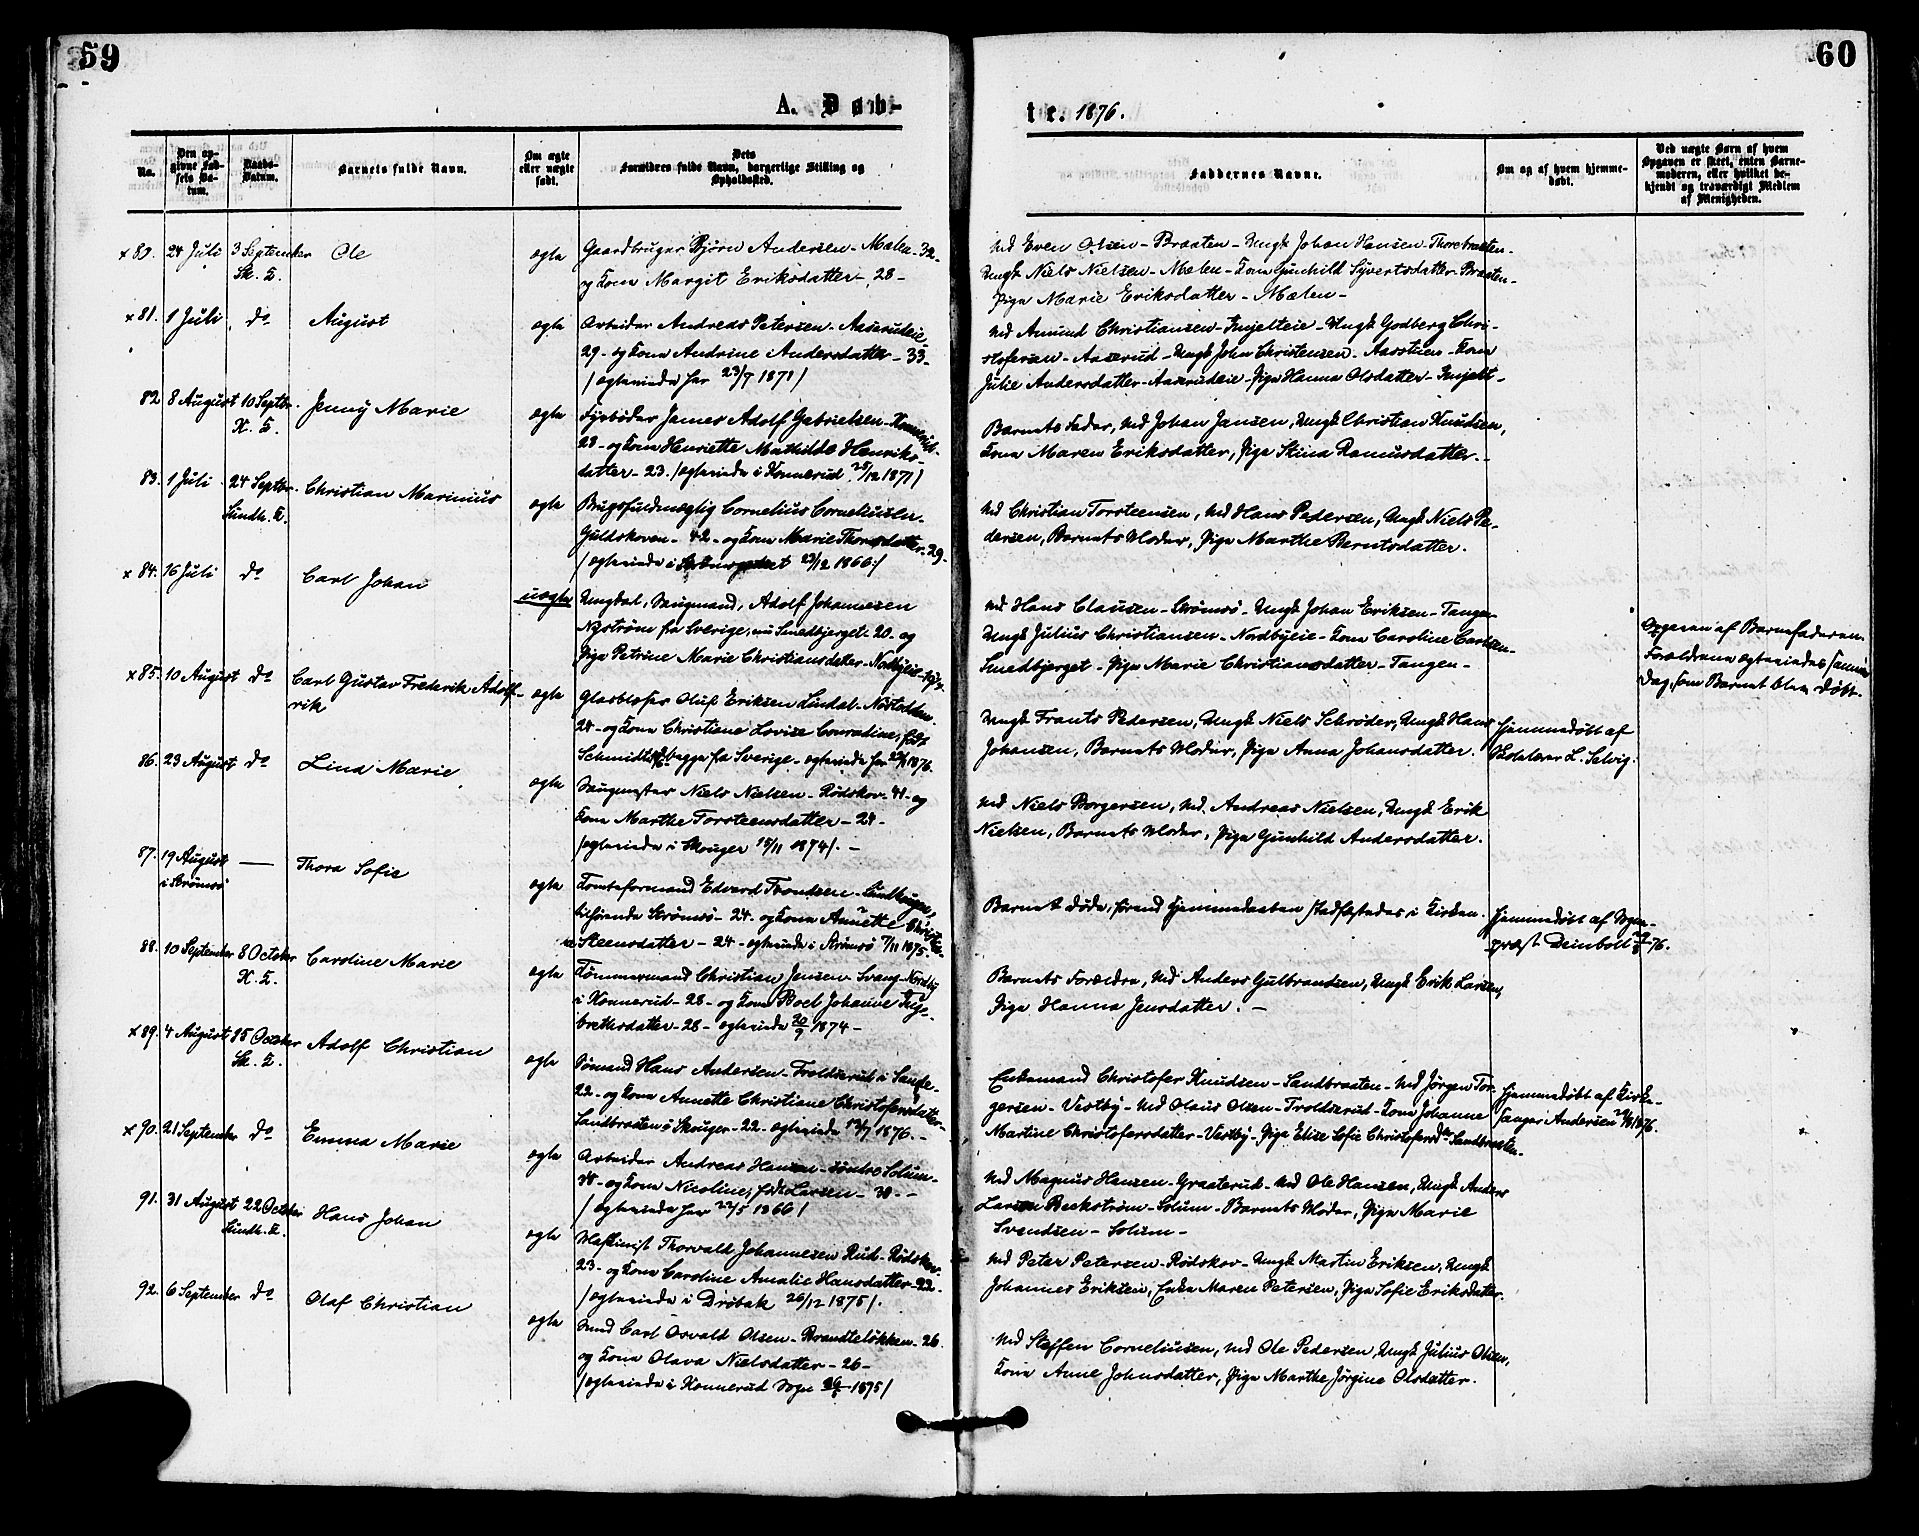 59
60
A. Døb-
te. 1876.
No.
Den op-
givne Fød-
sels Da-
tum.
Daabs-
Datum.
Barnets fulde Navn.
Om ægte
eller uægte
født.
Dets
Forældres fulde Navn, borgerlige Stilling og
Opholdssted.
Faddernes Navne.
Om og af hvem hjemme-
døbt.
Ved uægte Børn af hvem
Opgaven er skeet, enten Barne-
moderen, eller hvilket be-
kjendt og troværdigt Medlem
af Menigheden.
x 80. 24 Juli 3 September Ole ægte Gaardbruger Bjørn Andersen - Mælen - 32 -
Sk. K. og Kone Margit Eriksdatter - 28 -
Md Even Olsen - Braaten - Ungk Johan Hansen - Thorebraaten -
Ungk Niels Nielsen - Mælen - Kone Gunhild Syvertsdatter - Braaten -
Pige Marie Eriksdatter - Mælen -
x 81. 1 Juli do August ægte Arbeider Andreas Petersen - Aaserudeie,
29 - og Kone Andrine Andersdatter - 33 -
/ægteviede her 23/7 1871/
Md Amund Christiansen - Knivelteie - Ungk Godberg Chri-
stofersen - Aaserud - Ungk John Christensen - Aasstuen - Kone
Julie Andersdatter - Aaserudeie - Pige Hanna Olsdatter -
82 8 August 10 Septbr. Jenny Marie ægte Fyrbøder James Adolf Gabrielsen - Konnerud -
K. K. 28 - og Kone Henriette Mathilde Henriks-
datter - 23. /ægteviede i Konnerud 25/12 1871/
Barnets Fader, Md Johan Jansen, Ungk Christian Knudsen,
Kone Maren Eriksdatter, Pige Stina Ramusdatter. -
83. 1 Juli 24 Septbr. Christian Marinius ægte Brugsfuldmægtig Cornelius Corneliusen
Sundh. K. Guldskoven - 42 - og Kone Marie Thorsdatter - 29 -
/ægteviede i 23/12 1866/
Md Christian Torsteensen, Md Hans Pedersen, Ungk Niels Pe-
dersen, Barnets Moder, Pige Marthe Berntsdatter.
x 84. 16 Juli do Carl Johan uægte Ungkal, Saugmand, Adolf Johannesen
Nystrøm fra Sverige, nu Smedbjerget - 20 - og
Pige Petrine Marie Christiansdatter - Nordbyeie -
Md Hans Clausen - Strømsø - Ungk Johan Eriksen - Tangen -
Ungk Julius Christiansen - Nordbyeie - Kone Caroline Carlsen -
Smedbjerget - Pige Marie Christiansdatter - Tangen -
Opgaven af Barnefaderen
Forældrene ægteviedes samme
Dag, som Barnet blev døbt.
x 85. 10 August do Carl Gustav Frederik Adolf-
rik ægte Glasblæser Oluf Eriksen Lindal - Nøstodden
24 - og Kone Christiane Lovise Conradine, født
Schmidt, begge fra Sverige - ægteviede her 1876.
Ungk Frants Pedersen, Ungk Niels Schrøder, Ungk Hans
Johansen, Barnets Moder, Pige Anna Johansdatter.
Hjemmedøbt af
Skolelærer L. Selvig.
86. 23 August do Lina Marie ægte Saugmester Niels Nielsen - Rødskov - 41 - og
Kone Marthe Torsteensdatter - 24 -
/ægteviede i Skouger 15/11 1874/. -
Md Niels Borgersen, Md. Andreas Nielsen, Ungk Erik
Nielsen, Barnets Moder, Pige Gunhild Andersdatter.
87. 19 August — Thora Sofie ægte Tomteformand Edvard Trondsen -
i Strømsø tilhørende Strømsø - 24 - og Kone Annette Christine
Steensdatter - 24 - ægteviede i Strømsø 7/11 1875.
Barnet døde, forend Hjemmedaaben stadfæstedes i Kirken.
Hjemmedøbt af Sogne-
præst Deinboll 29/8 76.
88. 10 September 8 October Caroline Marie ægte Tømmermand Christian Jensen Svang - Nordby
K. K. i Konnerud - 28 - og Kone Boel Johanne Ing-
brethsdatter - 28 - ægteviede 20/9 1874 -
Barnets Forældre, Md Anders Gulbrandsen, Ungk Erik Larsen,
Pige Hanna Jensdatter. -
x 89. 4 August 15 October Adolf Christian ægte Sømand Hans Andersen - Troldserud i Sande -
Sk. K. 22 - og Kone Annette Christiane Christofersdatter
Sandbraaten i Skouger - 22 - ægteviede 12/7 1876. -
Enkemand Christofer Knudsen - Sandbraaten - Md Jørgen Tor-
gersen - Vestby - Md Olaus Olsen - Troldserud - Kone Johanne
Martine Christofersdatter - Vestby - Pige Elise Sofie Christofersdtr Sandbraaten -
Hjemmedøbt af Kirke-
sanger Andersen 1876.
x 90. 21 September do Emma Marie ægte Arbeider Andreas Hansen - søndre Solum -
38 - og Kone Nicoline, født Larsen - 38 - -
/ægteviede her 22/5 1866/
Md Magnus Hansen - Graaterud - Md Ole Hansen, Ungk Anders
Larsen Beckstrøm - Solum - Barnets Moder, Pige Marie
Svendsen - Solum -
91. 31 August 22 October Hans Johan ægte Maskinist Thorvald Johannesen Rud - Rødskov -
Sundh. K. 23 - og Kone Caroline Amalie Hansdatter - 22 -
/ægteviede i Drøbak 26/12 1875/.
Md Peter Petersen - Rødskov - Ungk Martin Eriksen, Ungk
Johannes Eriksen, Enke Maren Petersen, Pige Sofie Eriksdatter.
92. 6 September do Olaf Christian ægte Smed Carl Osvald Olsen - Brandteløkken - 26
og Kone Olava Nielsdatter - 26 -
/ægteviede i Konnerud Sogn 1875/
Md Steffen Corneliusen, Md Ole Pedersen, Ungk Julius Olsen,
Kone Anne Johnsdatter, Pige Marthe Jørgine Olsdatter.